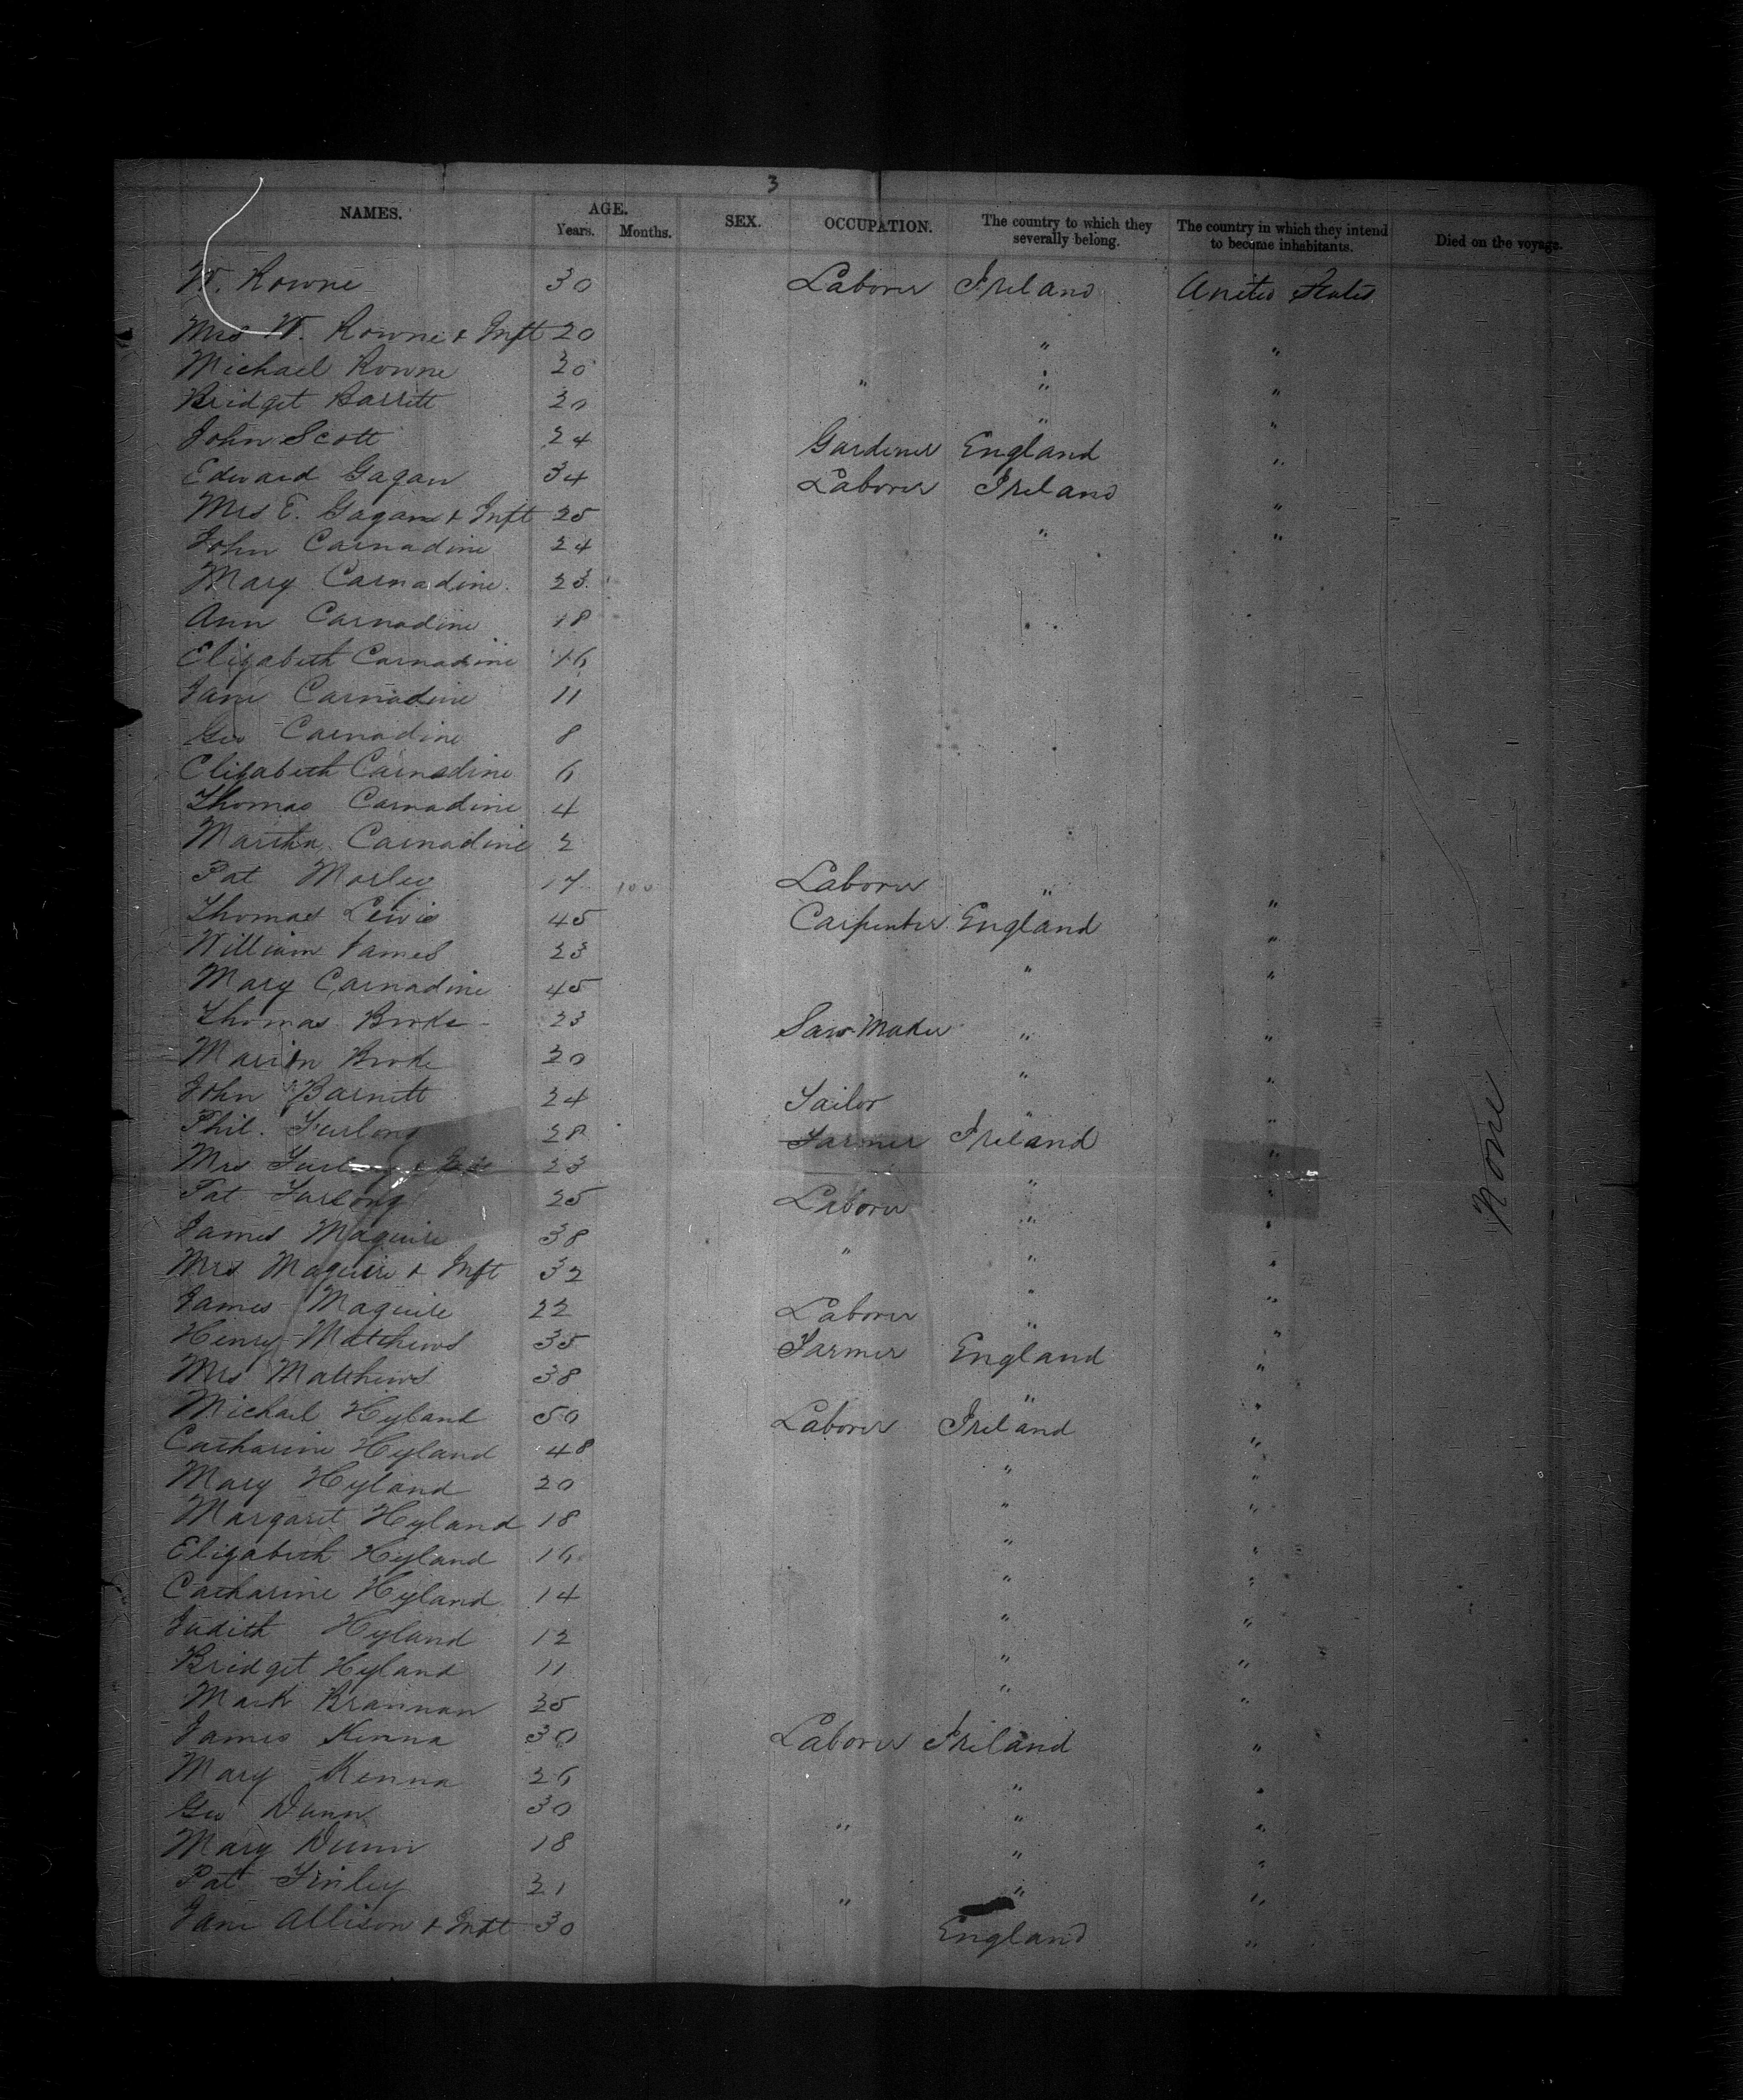 3
NAMES. AGE. Years. Months. SEX. OCCUPATION. The country to which they severally belong. The country in which they intend to become inhabitants. Died on the voyage.
W. Rowne 30 Laborer Ireland United States
Mrs W. Rowne & Inft 20 " "
Michael Rowne 20 " " "
Bridget Barrett 20 " "
John Scott 24 Gardener England "
Edward Gagan 34 Laborer Ireland "
Mrs E. Gagan & Inft 25 " "
John Carnadine 24
Mary Carnadine 23
Ann Carnadine 18
Elizabeth Carnadine 16
Jane Carnadine 11
Geo Carnadine 8
Elizabeth Carnadine 6
Thomas Carnadine 4
Martha Carnadine 2
Pat Morley 17 100 Laborer " "
Thomas Lewis 45 Carpenter England "
William James 23 " "
Mary Carnadine 45
Thomas Broke 23 Saw Maker " "
Marion Broke 20 " "
John Barnett 24 Tailor " "
Phil. Furlong 28 Farmer Ireland "
Mrs Furlong & 23 " "
Pat Furlong 25 Laborer " "
James Maguire 38 " " "
Mrs Maguire & Inft 32 " "
James Maguire 22 Laborer " "
Henry Matthews 35 Farmer England "
Mrs Matthews 38 " "
Michael Hyland 50 Laborer Ireland "
Catharine Hyland 48 " "
Mary Hyland 20 " "
Margaret Hyland 18 " "
Elizabeth Hyland 16 " "
Catharine Hyland 14 " "
Judith Hyland 12 " "
Bridget Hyland 11 " "
Mark Brannan 25
James Kenna 30 Laborer Ireland "
Mary Kenna 26 " "
Geo Dunn 30 " " "
Mary Dunn 18 " "
Pat Finley 21 " " "
Jane Allison & Inft 30 England "
None